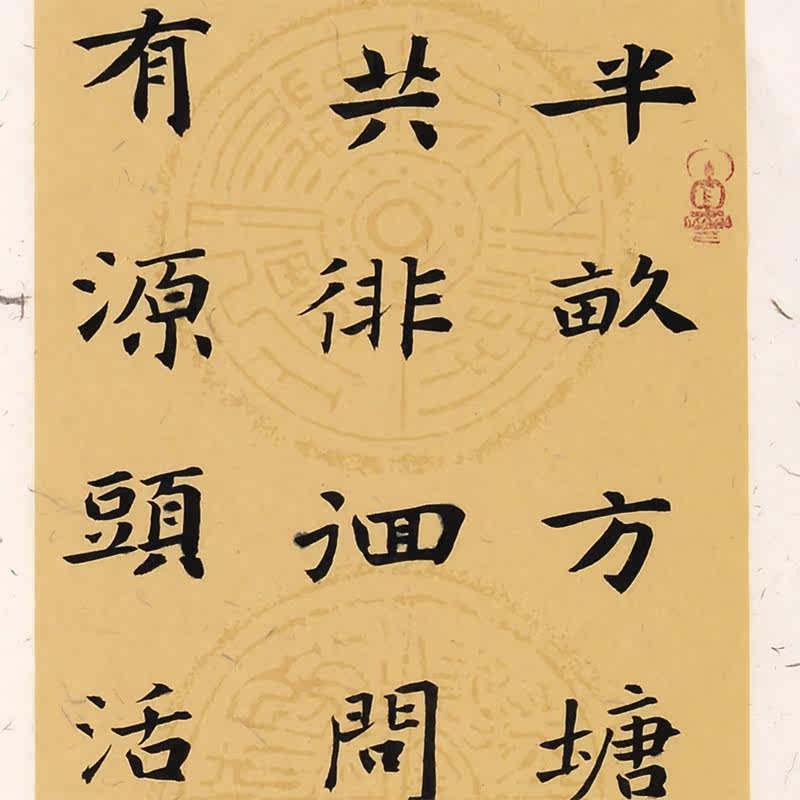 半畝方塘
共徘徊問
有源頭活